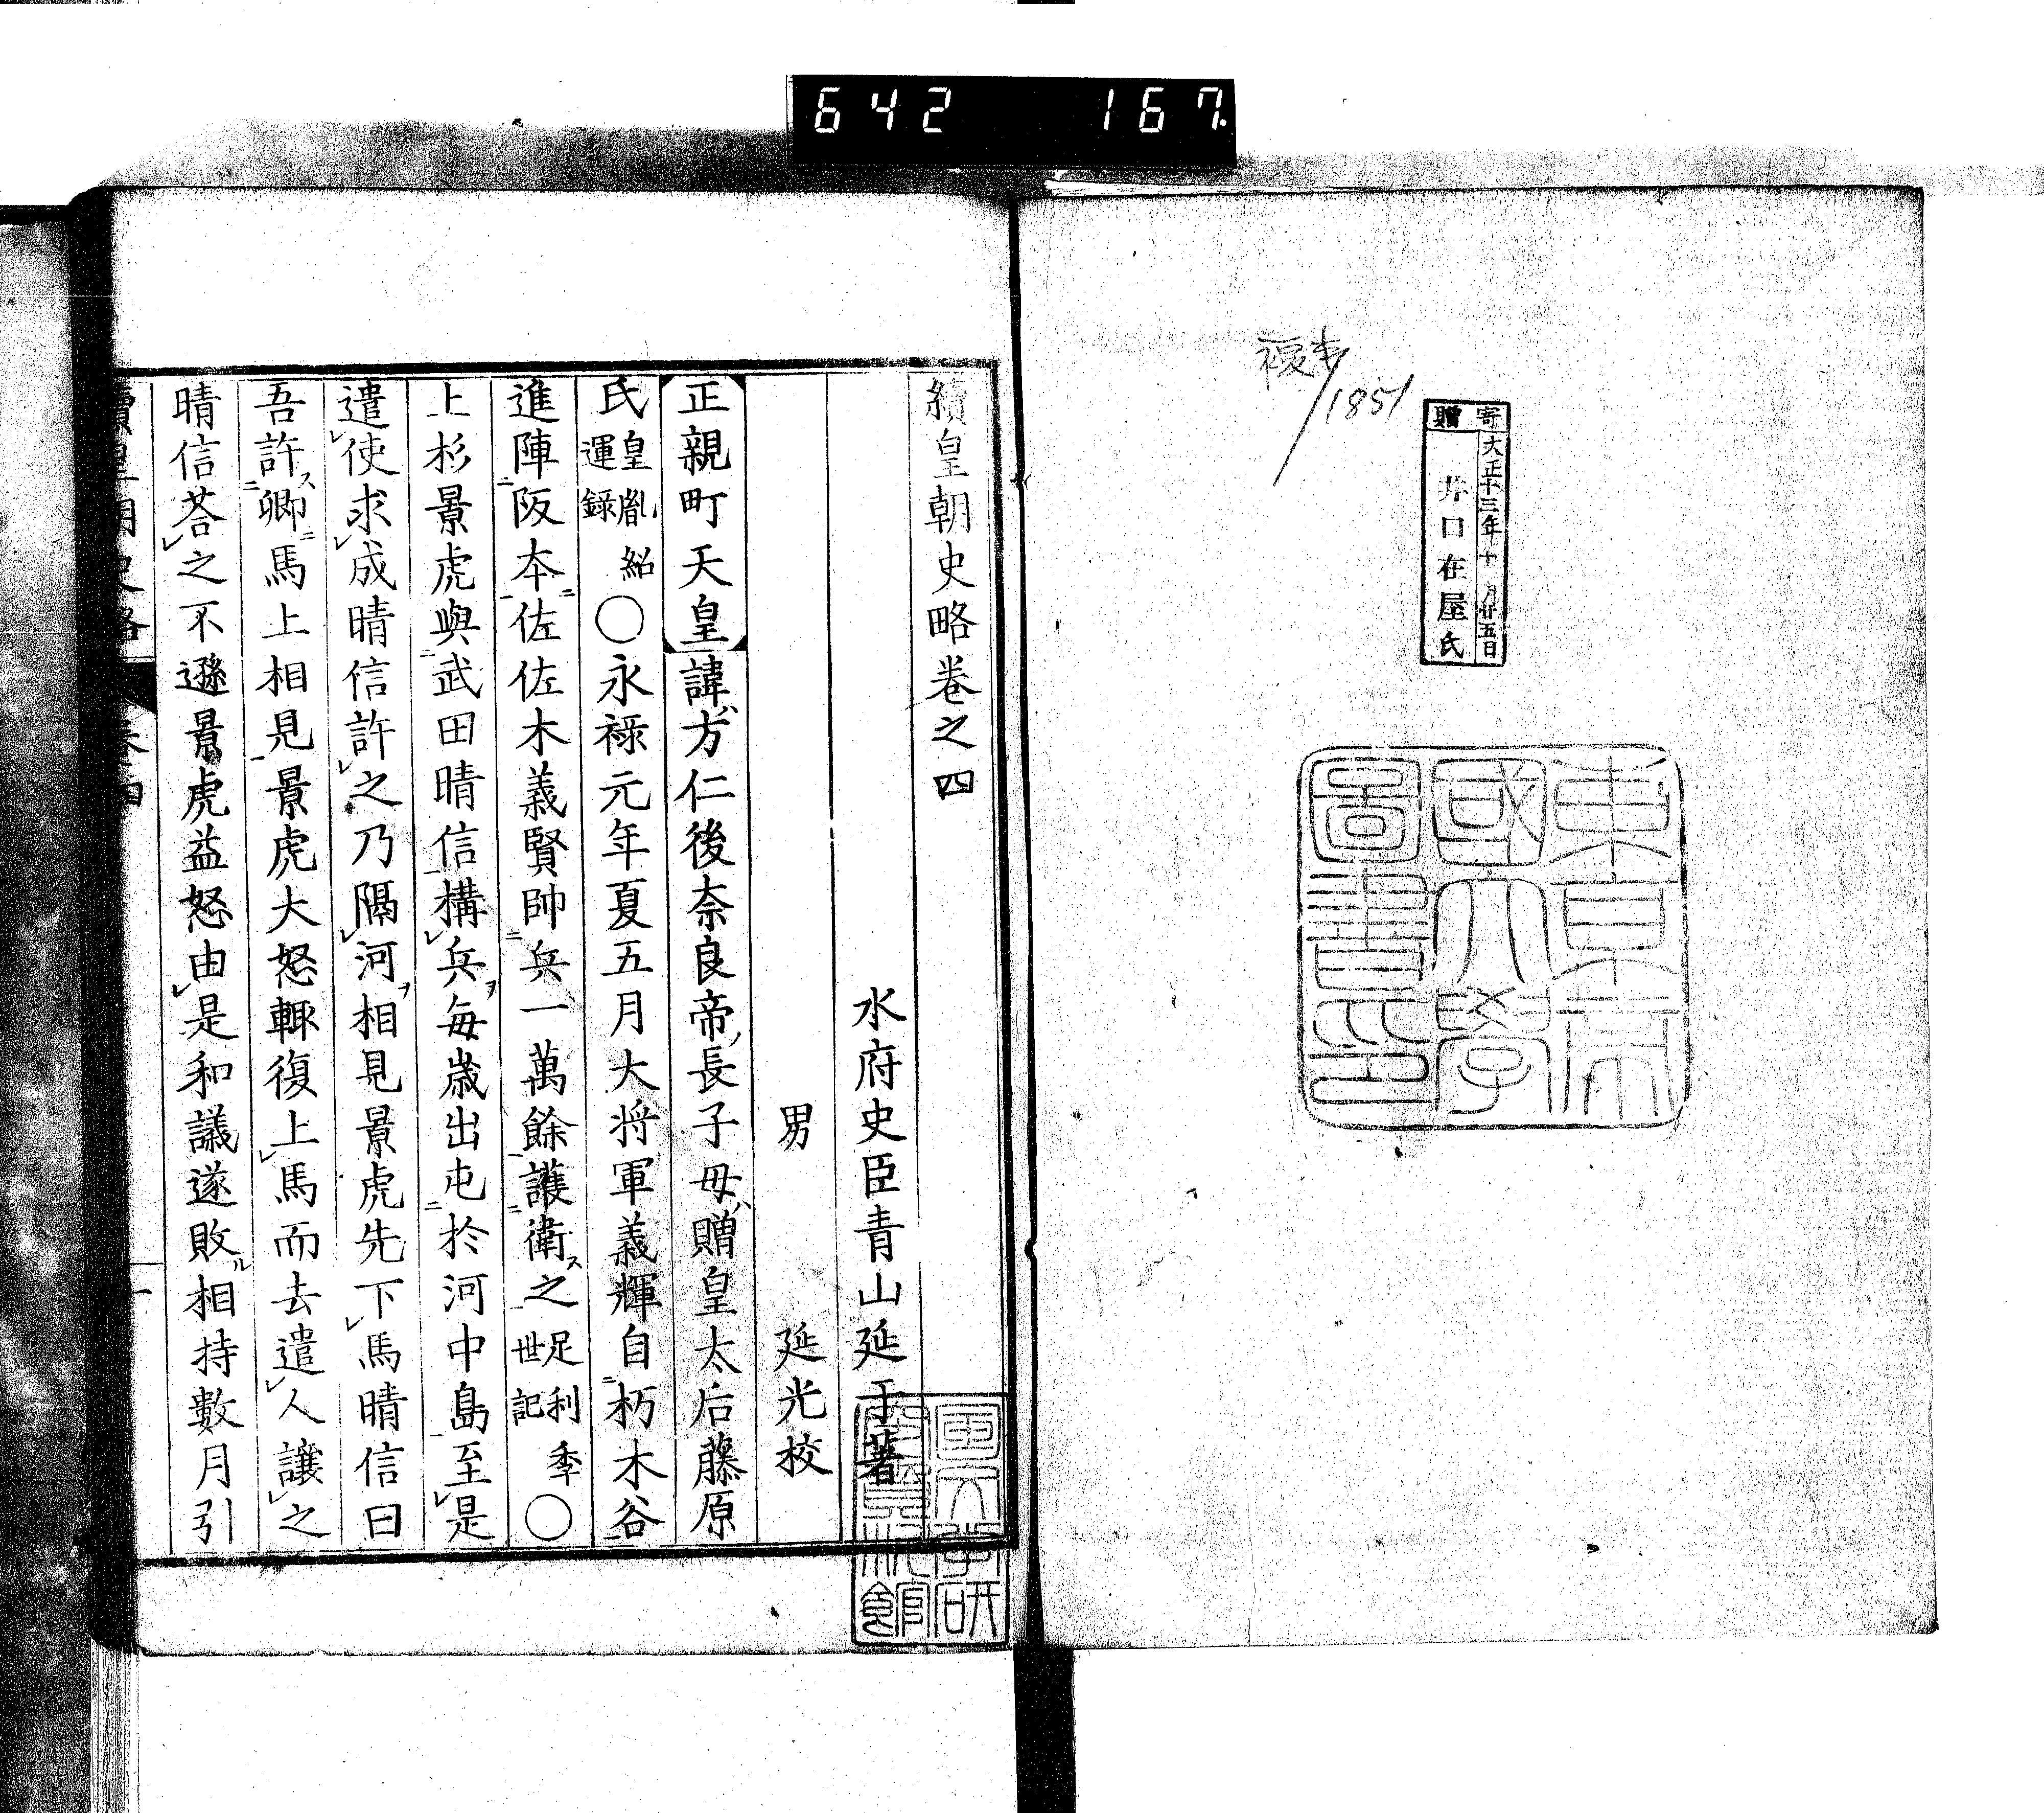 642 167
複本
1851
寄贈
大正十三年十月廿五日
井口在屋氏
東京帝
國大學
圖書印
續皇朝史略卷之四
水府史臣青山延于著
男 延光校
正親町天皇諱ハ方仁後奈良帝ノ長子母ハ贈皇太后藤原
氏皇胤紹運錄○永祿元年夏五月大将軍義輝自二朽木谷一
進二陣阪本一佐二佐木義賢帥二兵一萬餘一護二衛ス之一足利季世記○
上杉景虎與二武田晴信一構レ兵ヲ毎歳出二屯於河中島一至レ是
遣レ使求レ成晴信許レ之乃隔レ河ヲ相見景虎先下レ馬晴信曰
吾許ス二卿ニ馬上相見一景虎大怒輙復上レ馬而去遣レ人讓レ之
晴信荅レ之不遜景虎益怒由レ是和議遂敗ル相持數月引
續皇朝史略 卷四 一